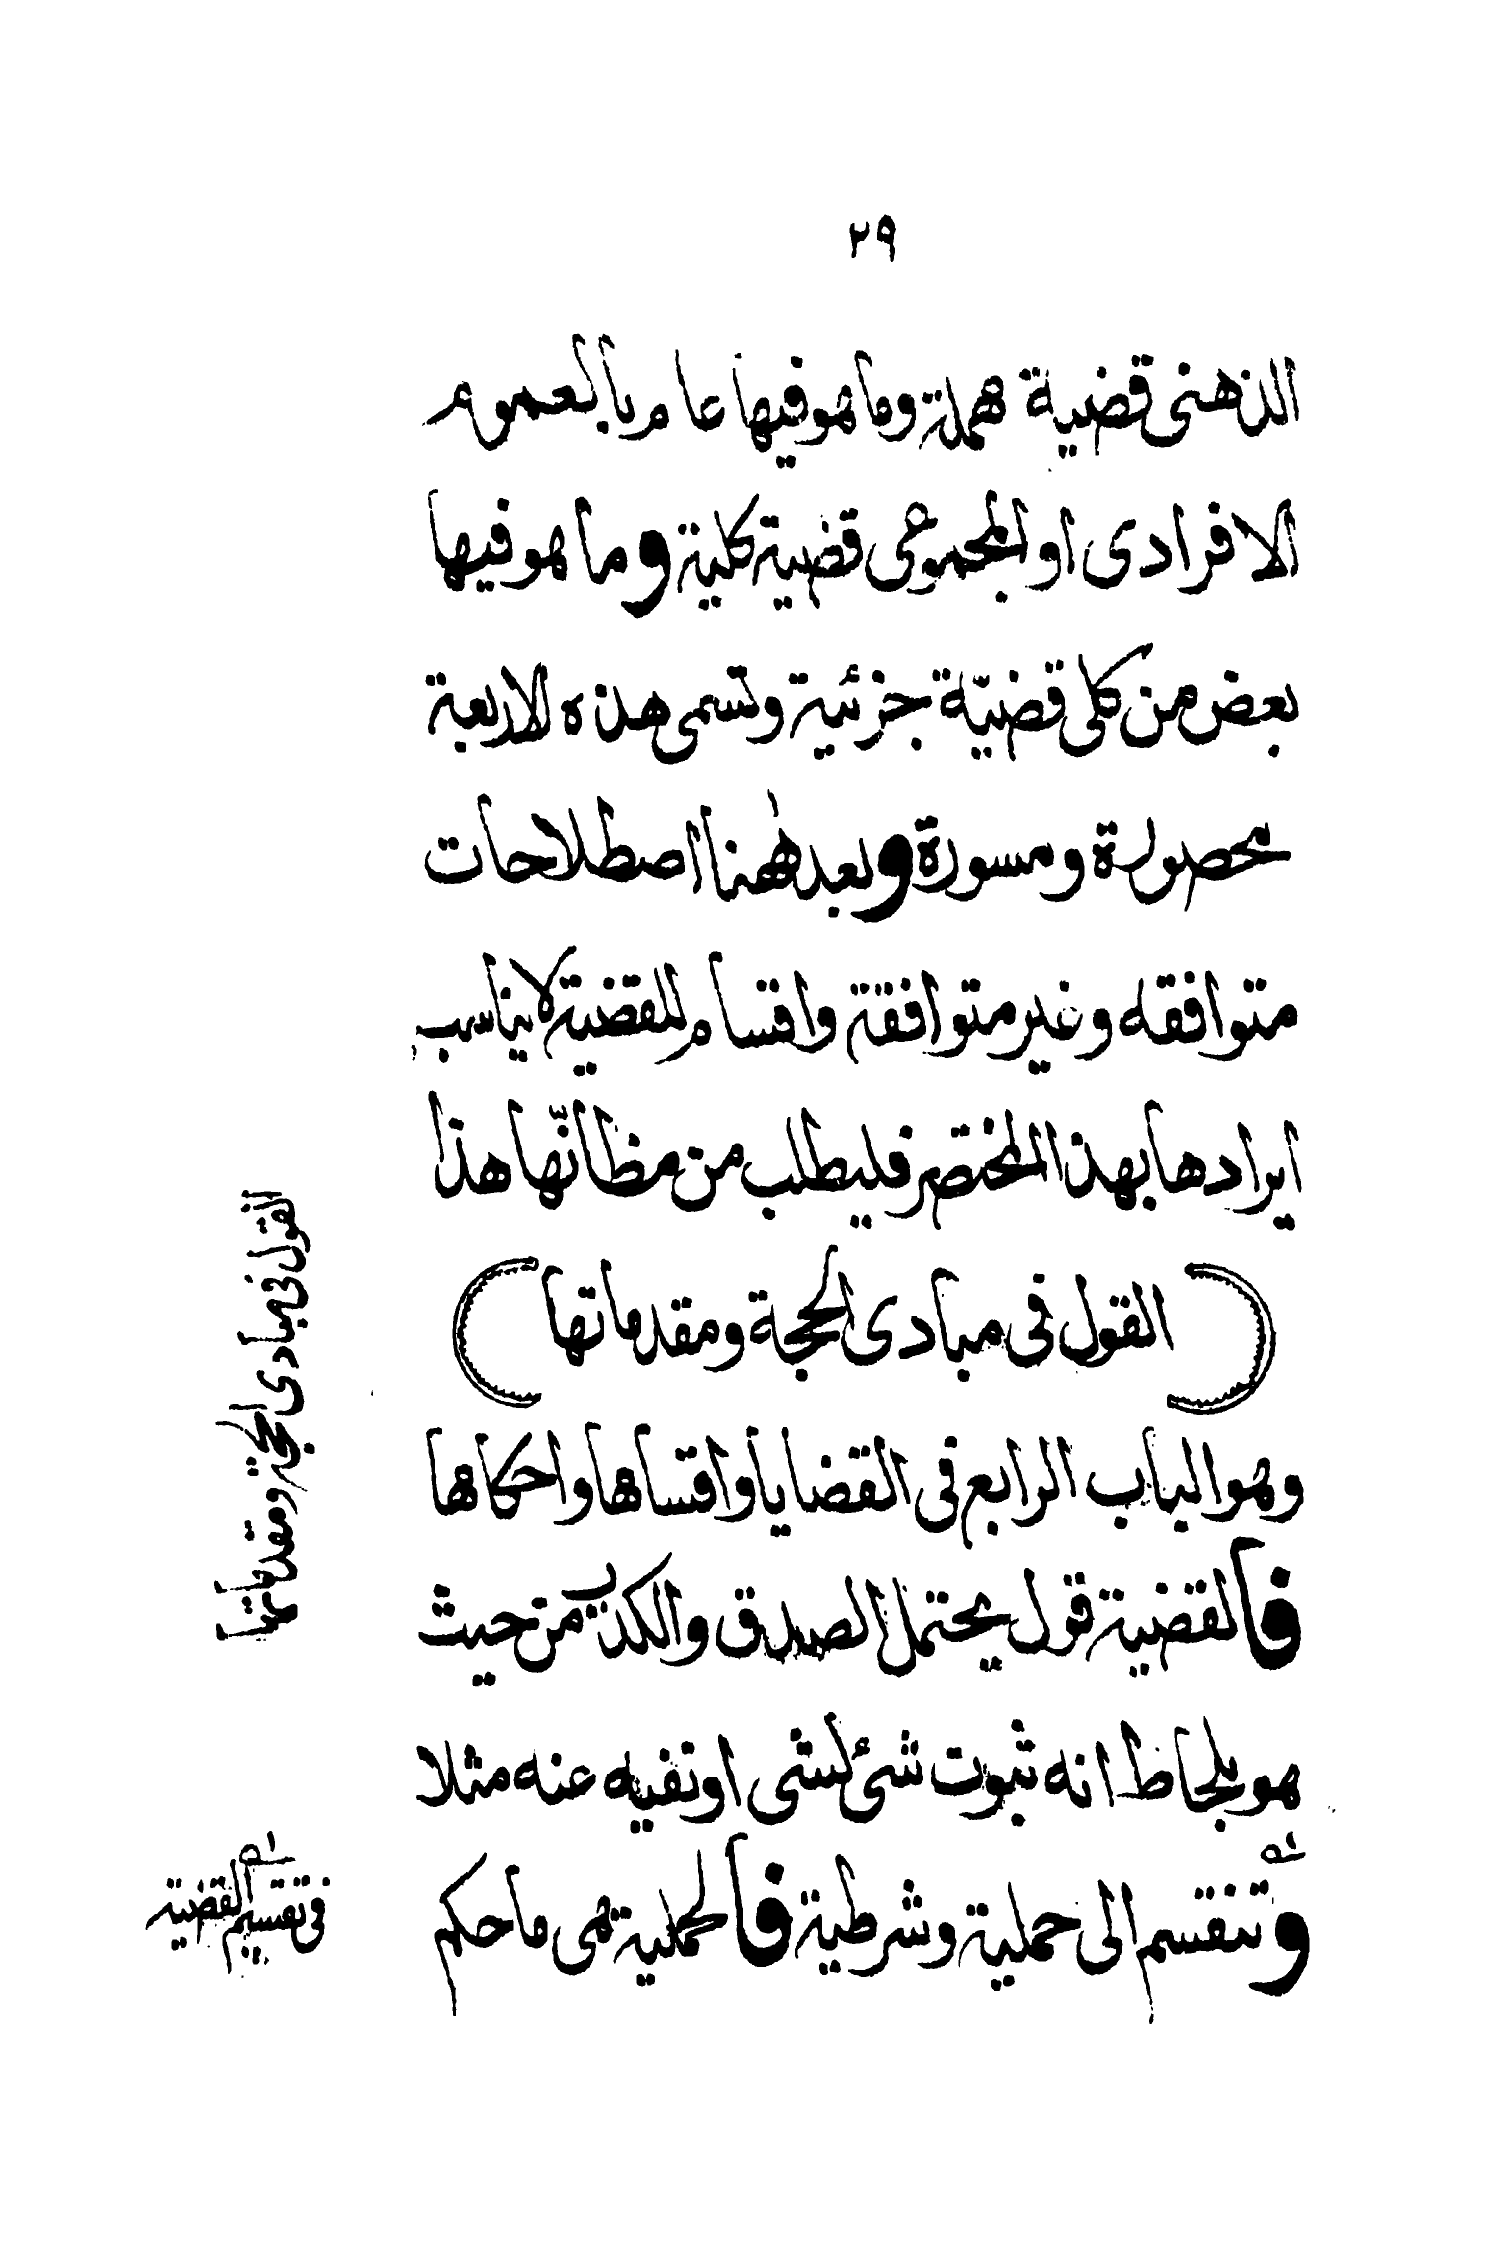 ٢٩
الذهنى قضية مهملة وما هو فيها عام بالعموم
الافرادى او المجموعى قضية كلية وما هو فيها
بعض من كلى قضيّة جزئية وتسمى هذه لاربعة
محصورة ومسورة وبعد هٰهنا اصطلاحات
متوافقه وغير متوافقة واقسام للقضية لا يناسب
ايرادها بهذا المختصر فليطلب من مظانّها هذا
(القول فى مبادى الحجة ومقدماتها)
وهو الباب الرابع فى القضايا واقساها واحكاها
فالقضية قول يحتمل الصدق والكذب من حيث
هو بلحاظ انه ثبوت شئ لشى او نفيه عنه مثلا
وتنقسم الى حملية وشرطية فالحملية هى ما حكم
القول فى مبادى الحجة ومقدماتها
فى تقسيم القضية